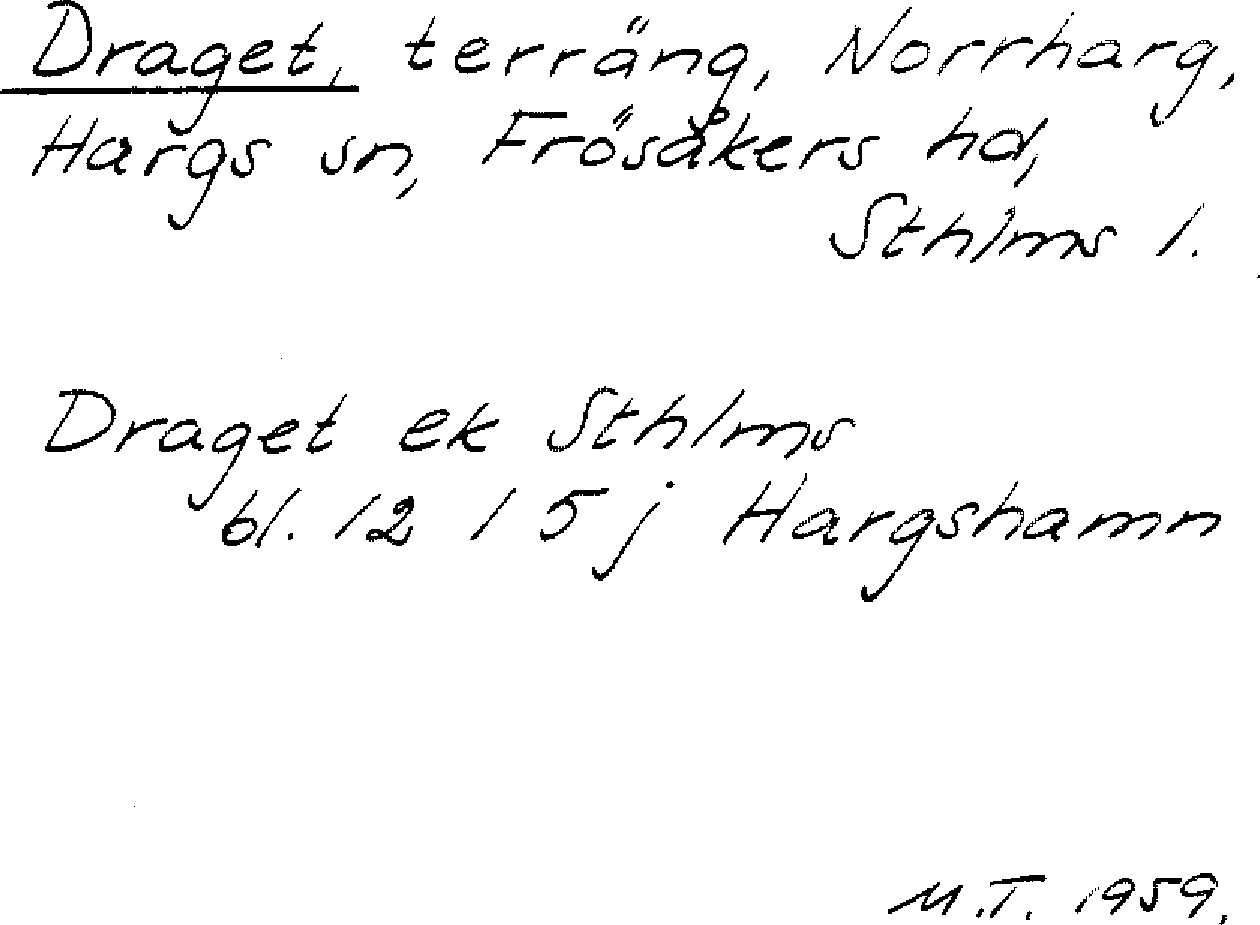 Draget, terräng, Norrharg,
Hargs sn, Frösåkers hd,
Sthlms l.
Draget ek Sthlms
bl. 12 I 5 j Hargshamn
M.T. 1959.